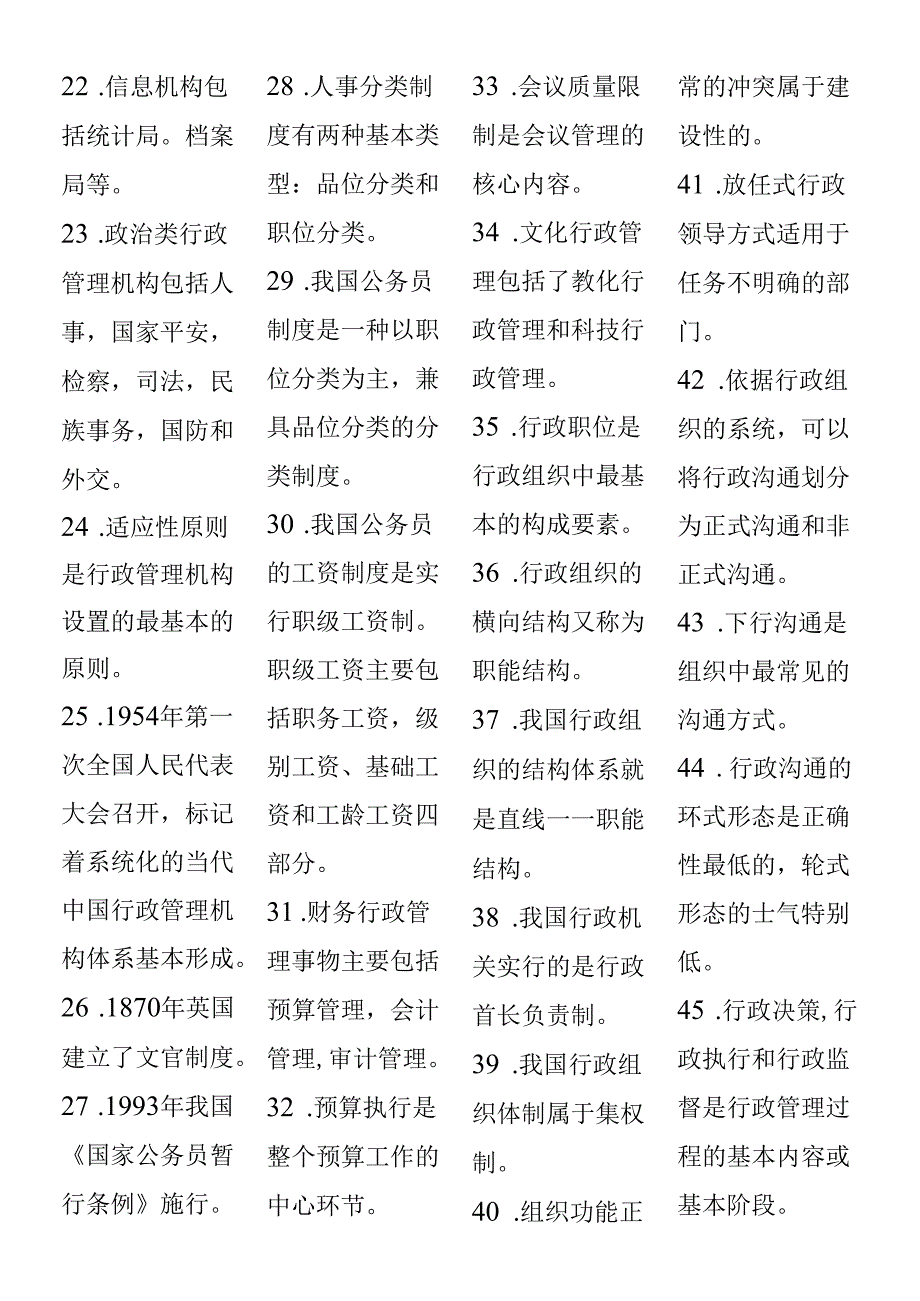 22 .信息机构包
括统计局。档案
局等。
23 .政治类行政
管理机构包括人
事，国家平安，
检察，司法，民
族事务，国防和
外交。
24 .适应性原则
是行政管理机构
设置的最基本的
原则。
25 .1954年第一
次全国人民代表
大会召开，标记
着系统化的当代
中国行政管理机
构体系基本形成。
26 .1870年英国
建立了文官制度。
27 .1993年我国
《国家公务员暂
行条例》施行。
28 .人事分类制
度有两种基本类
型：品位分类和
职位分类。
29 .我国公务员
制度是一种以职
位分类为主，兼
具品位分类的分
类制度。
30 .我国公务员
的工资制度是实
行职级工资制。
职级工资主要包
括职务工资，级
别工资、基础工
资和工龄工资四
部分。
31 .财务行政管
理事物主要包括
预算管理，会计
管理,审计管理。
32 .预算执行是
整个预算工作的
中心环节。
33 .会议质量限
制是会议管理的
核心内容。
34 .文化行政管
理包括了教化行
政管理和科技行
政管理。
35 .行政职位是
行政组织中最基
本的构成要素。
36 .行政组织的
横向结构又称为
职能结构。
37 .我国行政组
织的结构体系就
是直线一一职能
结构。
38 .我国行政机
关实行的是行政
首长负责制。
39 .我国行政组
织体制属于集权
制。
40 .组织功能正
常的冲突属于建
设性的。
41 .放任式行政
领导方式适用于
任务不明确的部
门。
42 .依据行政组
织的系统，可以
将行政沟通划分
为正式沟通和非
正式沟通。
43 .下行沟通是
组织中最常见的
沟通方式。
44 .行政沟通的
环式形态是正确
性最低的，轮式
形态的士气特别
低。
45 .行政决策,行
政执行和行政监
督是行政管理过
程的基本内容或
基本阶段。